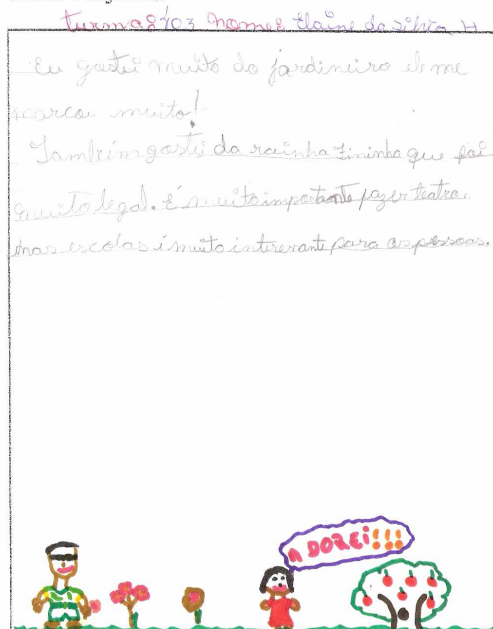 turma: 103 nome: Elaine da Silva H
Eu gostei muito do jardineiro ele me
marcou muito!
Também gostei da rainha Zininha que foi
muito legal. É muito importante fazer teatro
nas escolas é muito interesante para as pessoas.
ADOREI!!!